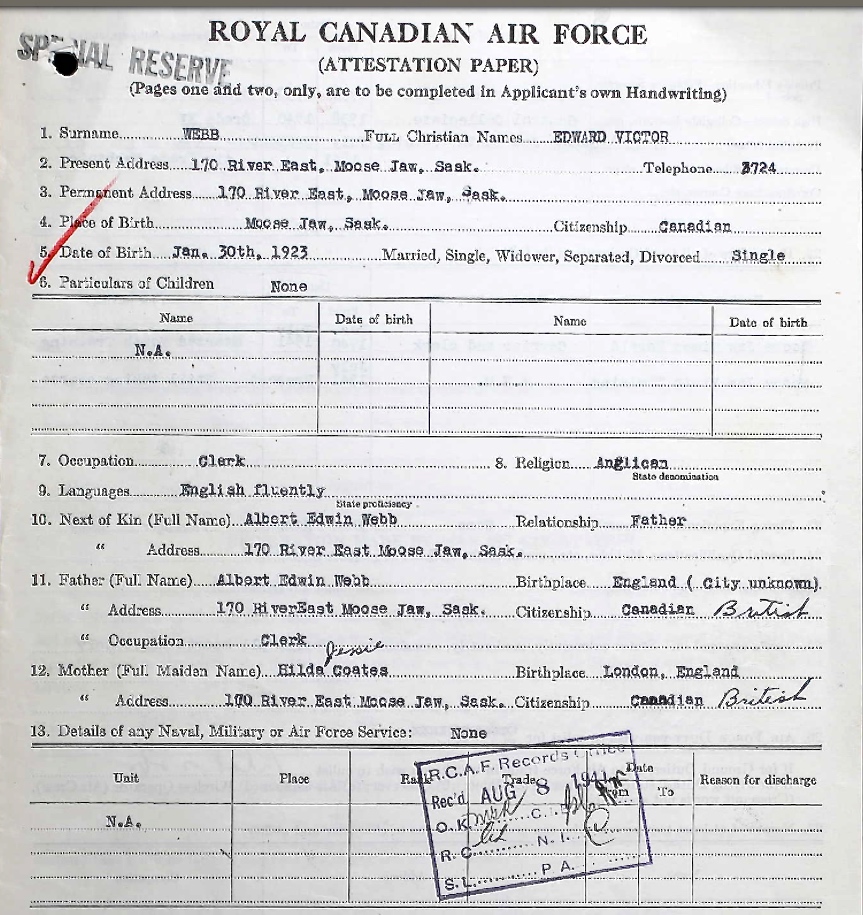 ROYAL CANADIAN AIR FORCE
SPECIAL RESERVE
(ATTESTATION PAPER)
(Pages one and two, only, are to be completed in Applicant's own Handwriting)
1. Surname WEBB Full Christian Names EDWARD VICTOR
2. Present Address 170 River East, Moose Jaw, Sask. Telephone 3724
3. Permanent Address 170 River East, Moose Jaw, Sask.
4. Place of Birth Moose Jaw, Sask. Citizenship Canadian
5. Date of Birth Jan. 30th, 1923 Married, Single, Widower, Separated, Divorced Single
6. Particulars of Children None
Name Date of birth Name Date of birth
N.A.
7. Occupation Clerk 8. Religion Anglican
State denomination
9. Languages English fluently
State proficiency
10. Next of Kin (Full Name) Albert Edwin Webb Relationship Father
" Address 170 River East Moose Jaw, Sask.
11. Father (Full Name) Albert Edwin Webb Birthplace England ( City unknown).
" Address 170 RiverEast Moose Jaw, Sask. Citizenship Canadian British
" Occupation Clerk
Jessie
12. Mother (Full Maiden Name) Hilda Coates Birthplace London, England
" Address 170 River East Moose Jaw, Sask. Citizenship Canadian British
13. Details of any Naval, Military or Air Force Service: None
Unit Place Rank Trade Date Reason for discharge
From To
N.A.
R.C.A.F. Records Office
Rec'd AUG 8 1941
O.K. C.
R.C. N.I.
S.L. P.A.